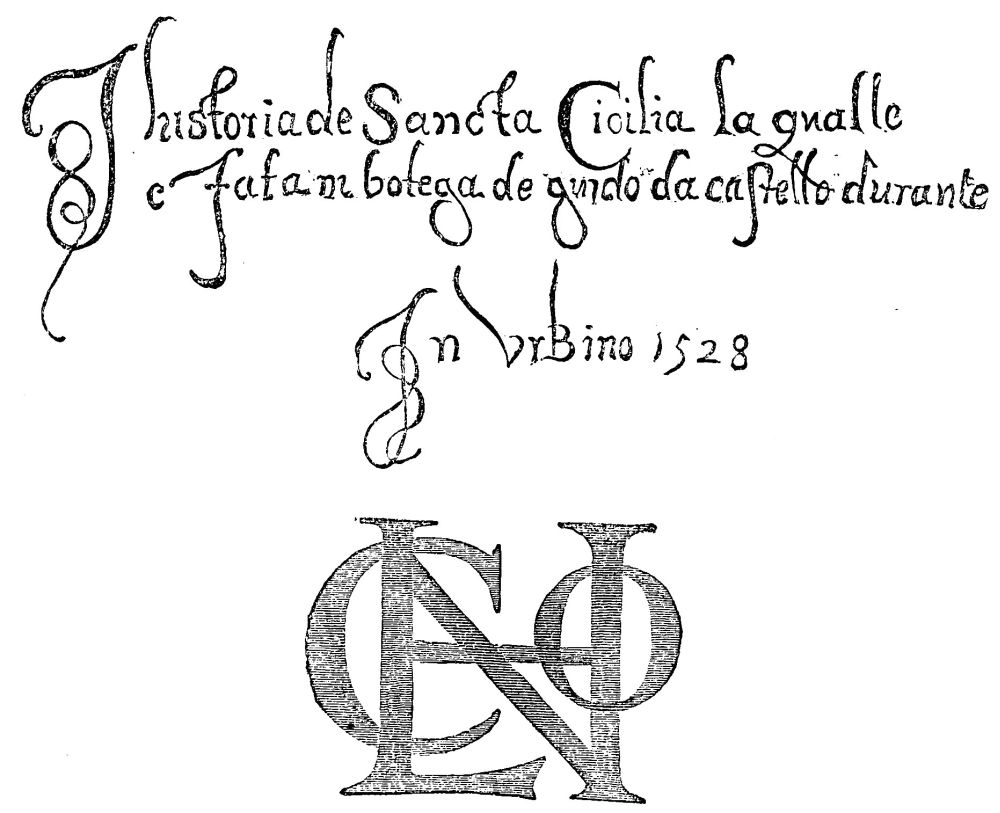 I historia de Sancta Cicilia la qualle
e fata in botega de guido da castello durante
In VrBino 1528